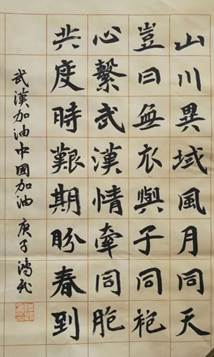 山川異域風月同天
豈曰無衣與子同袍
心繫武漢情牽同胞
共度時艱期盼春到
武漢加油中國加油 庚子鴻